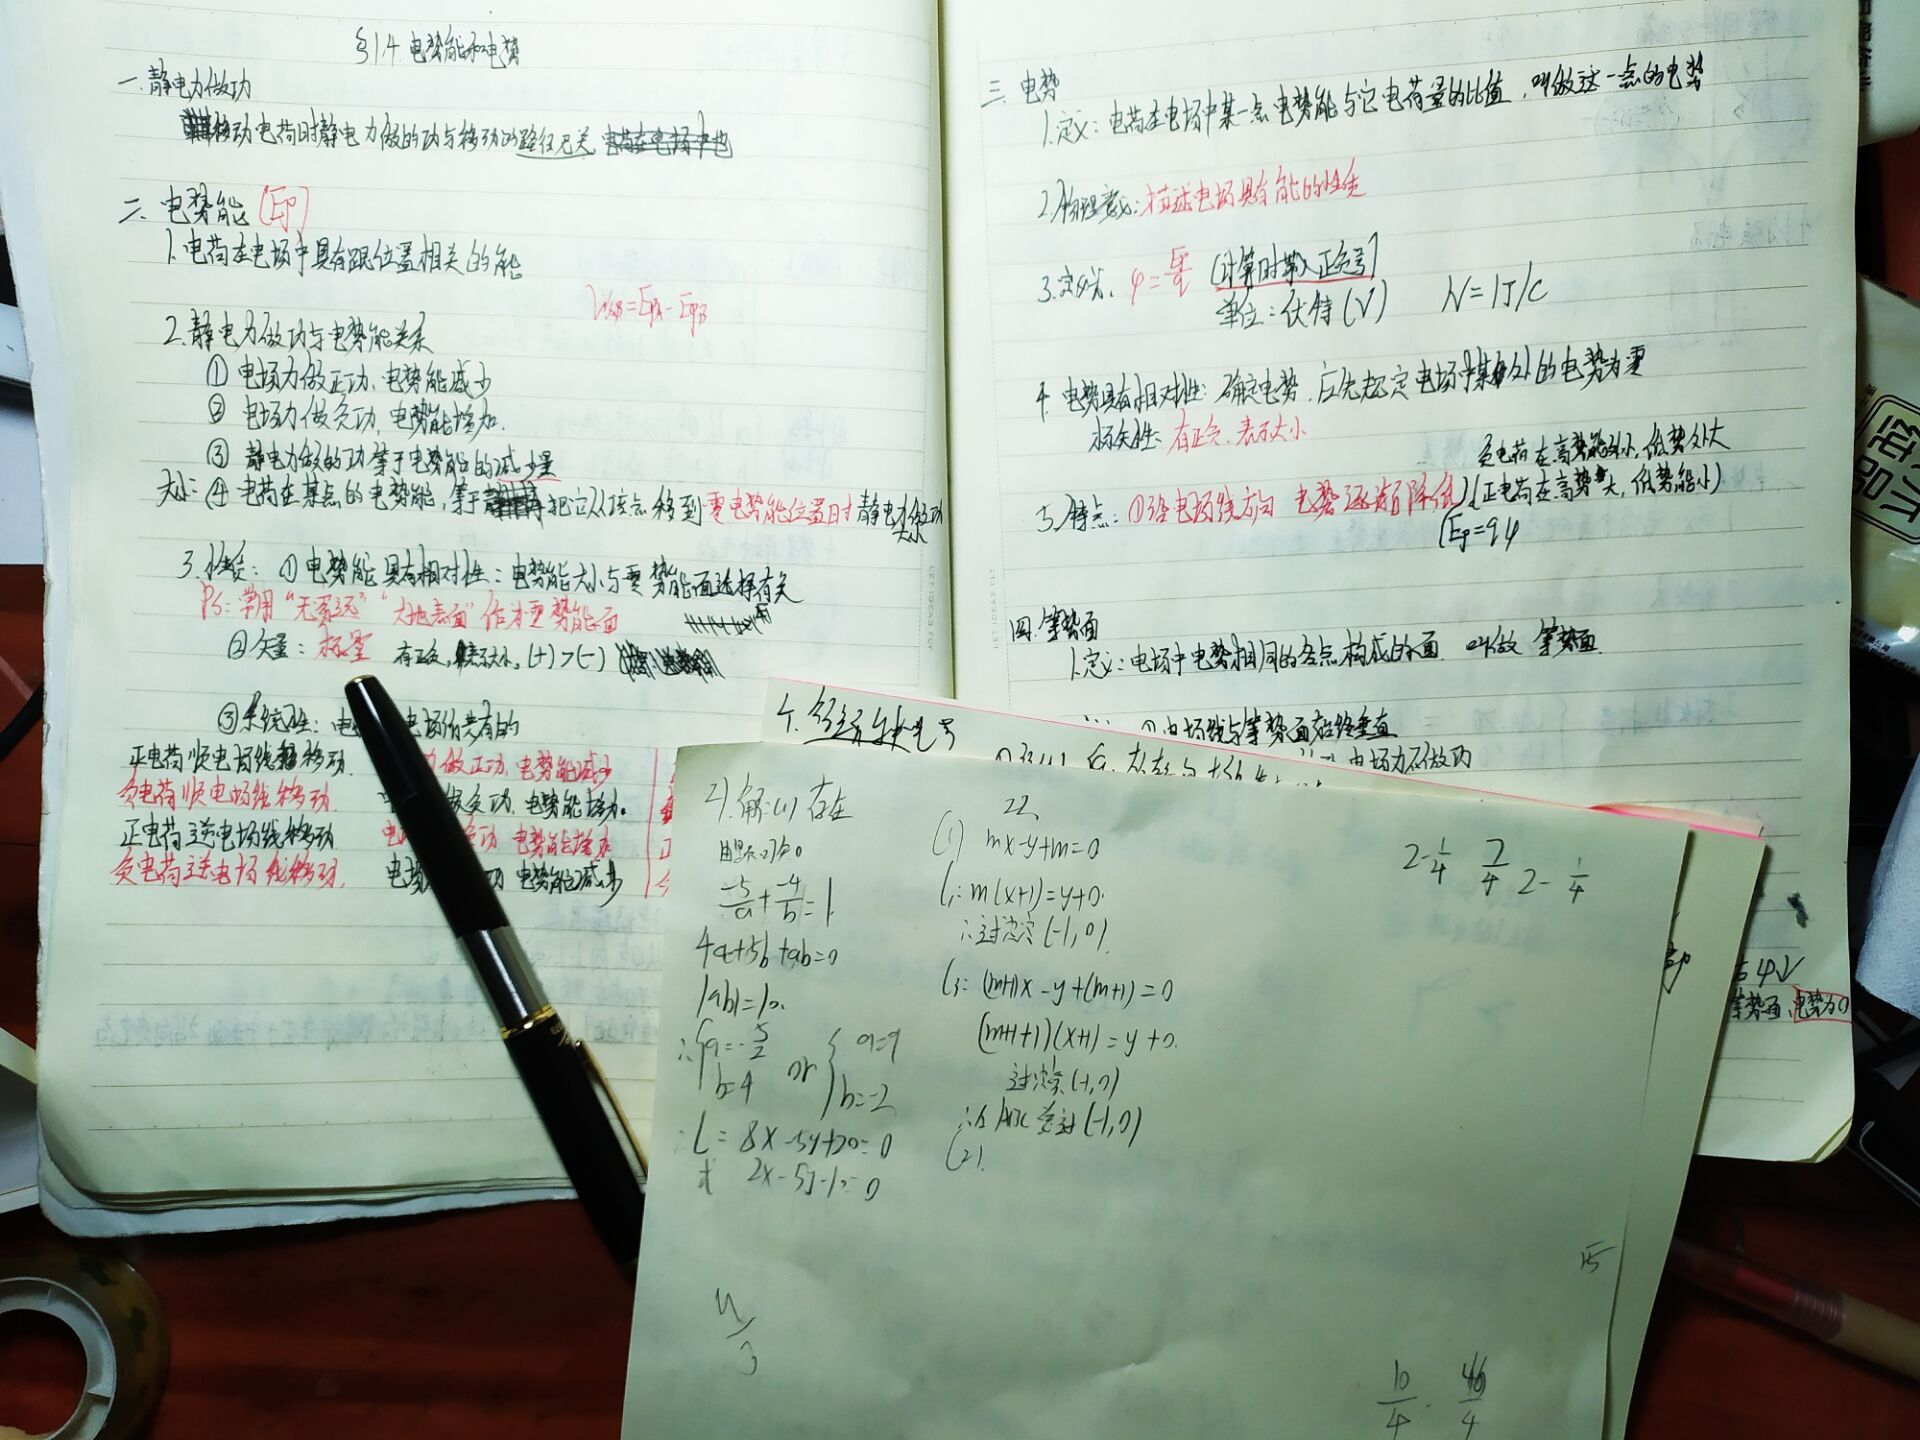 §1.4 电势能和电势
一.静电力做功
移动电荷时静电力做的功与移动的路径无关
二.电势能(Ep)
1.电荷在电场中具有跟位置相关的能
WAB=EpA-EpB
2.静电力做功与电势能关系
① 电场力做正功,电势能减少
② 电场力做负功,电势能增加.
③ 静电力做的功等于电势能的减少量
大小:④ 电荷在某点的电势能,等于把它从该点移到零电势能位置时静电力做功
3.性质:①电势能具有相对性:电势能大小与零势能面选择有关
PS:常用“无穷远”“大地表面”作为零势能面
②矢量:标量 有正负,表示大小,(+)>(-)
③系统性:电 电场所共有的
正电荷顺电场线移动. 力做正功,电势能减少
负电荷顺电场线移动. 做负功,电势能增加.
正电荷逆电场线移动. 功 电势能增加
负电荷逆电场线移动. 电场 功 电势能减少
三.电势
1.定义:电荷在电场中某一点电势能与它电荷量的比值,叫做这一点的电势
2.物理意义:描述电场具有能的性质
3.定义式. φ=Ep/q (计算时带入正负号)
单位:伏特(V) 1V=1J/C
4.电势具有相对性:确定电势,应先规定电场中某处的电势为零
标矢性:有正负,表示大小
负电荷在高势能小,低势处大
5.特点:①沿电场线方向 电势逐渐降低 (正电荷在高势大,低势能小)
(Ep=qφ
四.等势面
1.定义:电场中电势相同的各点构成的面.叫做 等势面.
①电场线与等势面始终垂直
电场力不做功
等势面,电势为0
21.解:(1)存在
由题可知
-5/a+-4/b=1
4a+5b+ab=0
|ab|=10.
∴{a=-5/2 b=4 or { b=-2
∴L=8x-5y+20=0
或 2x-5y-10=0
22
(1) mx-y+m=0
l1:m(x+1)=y+0.
∴过定点(-1,0)
l3:(m+1)x-y+(m+1)=0
(m+1)(x+1)=y+0.
过定点(-1,0)
(2).
2-1/4 7/4 2-1/4
15
10/4